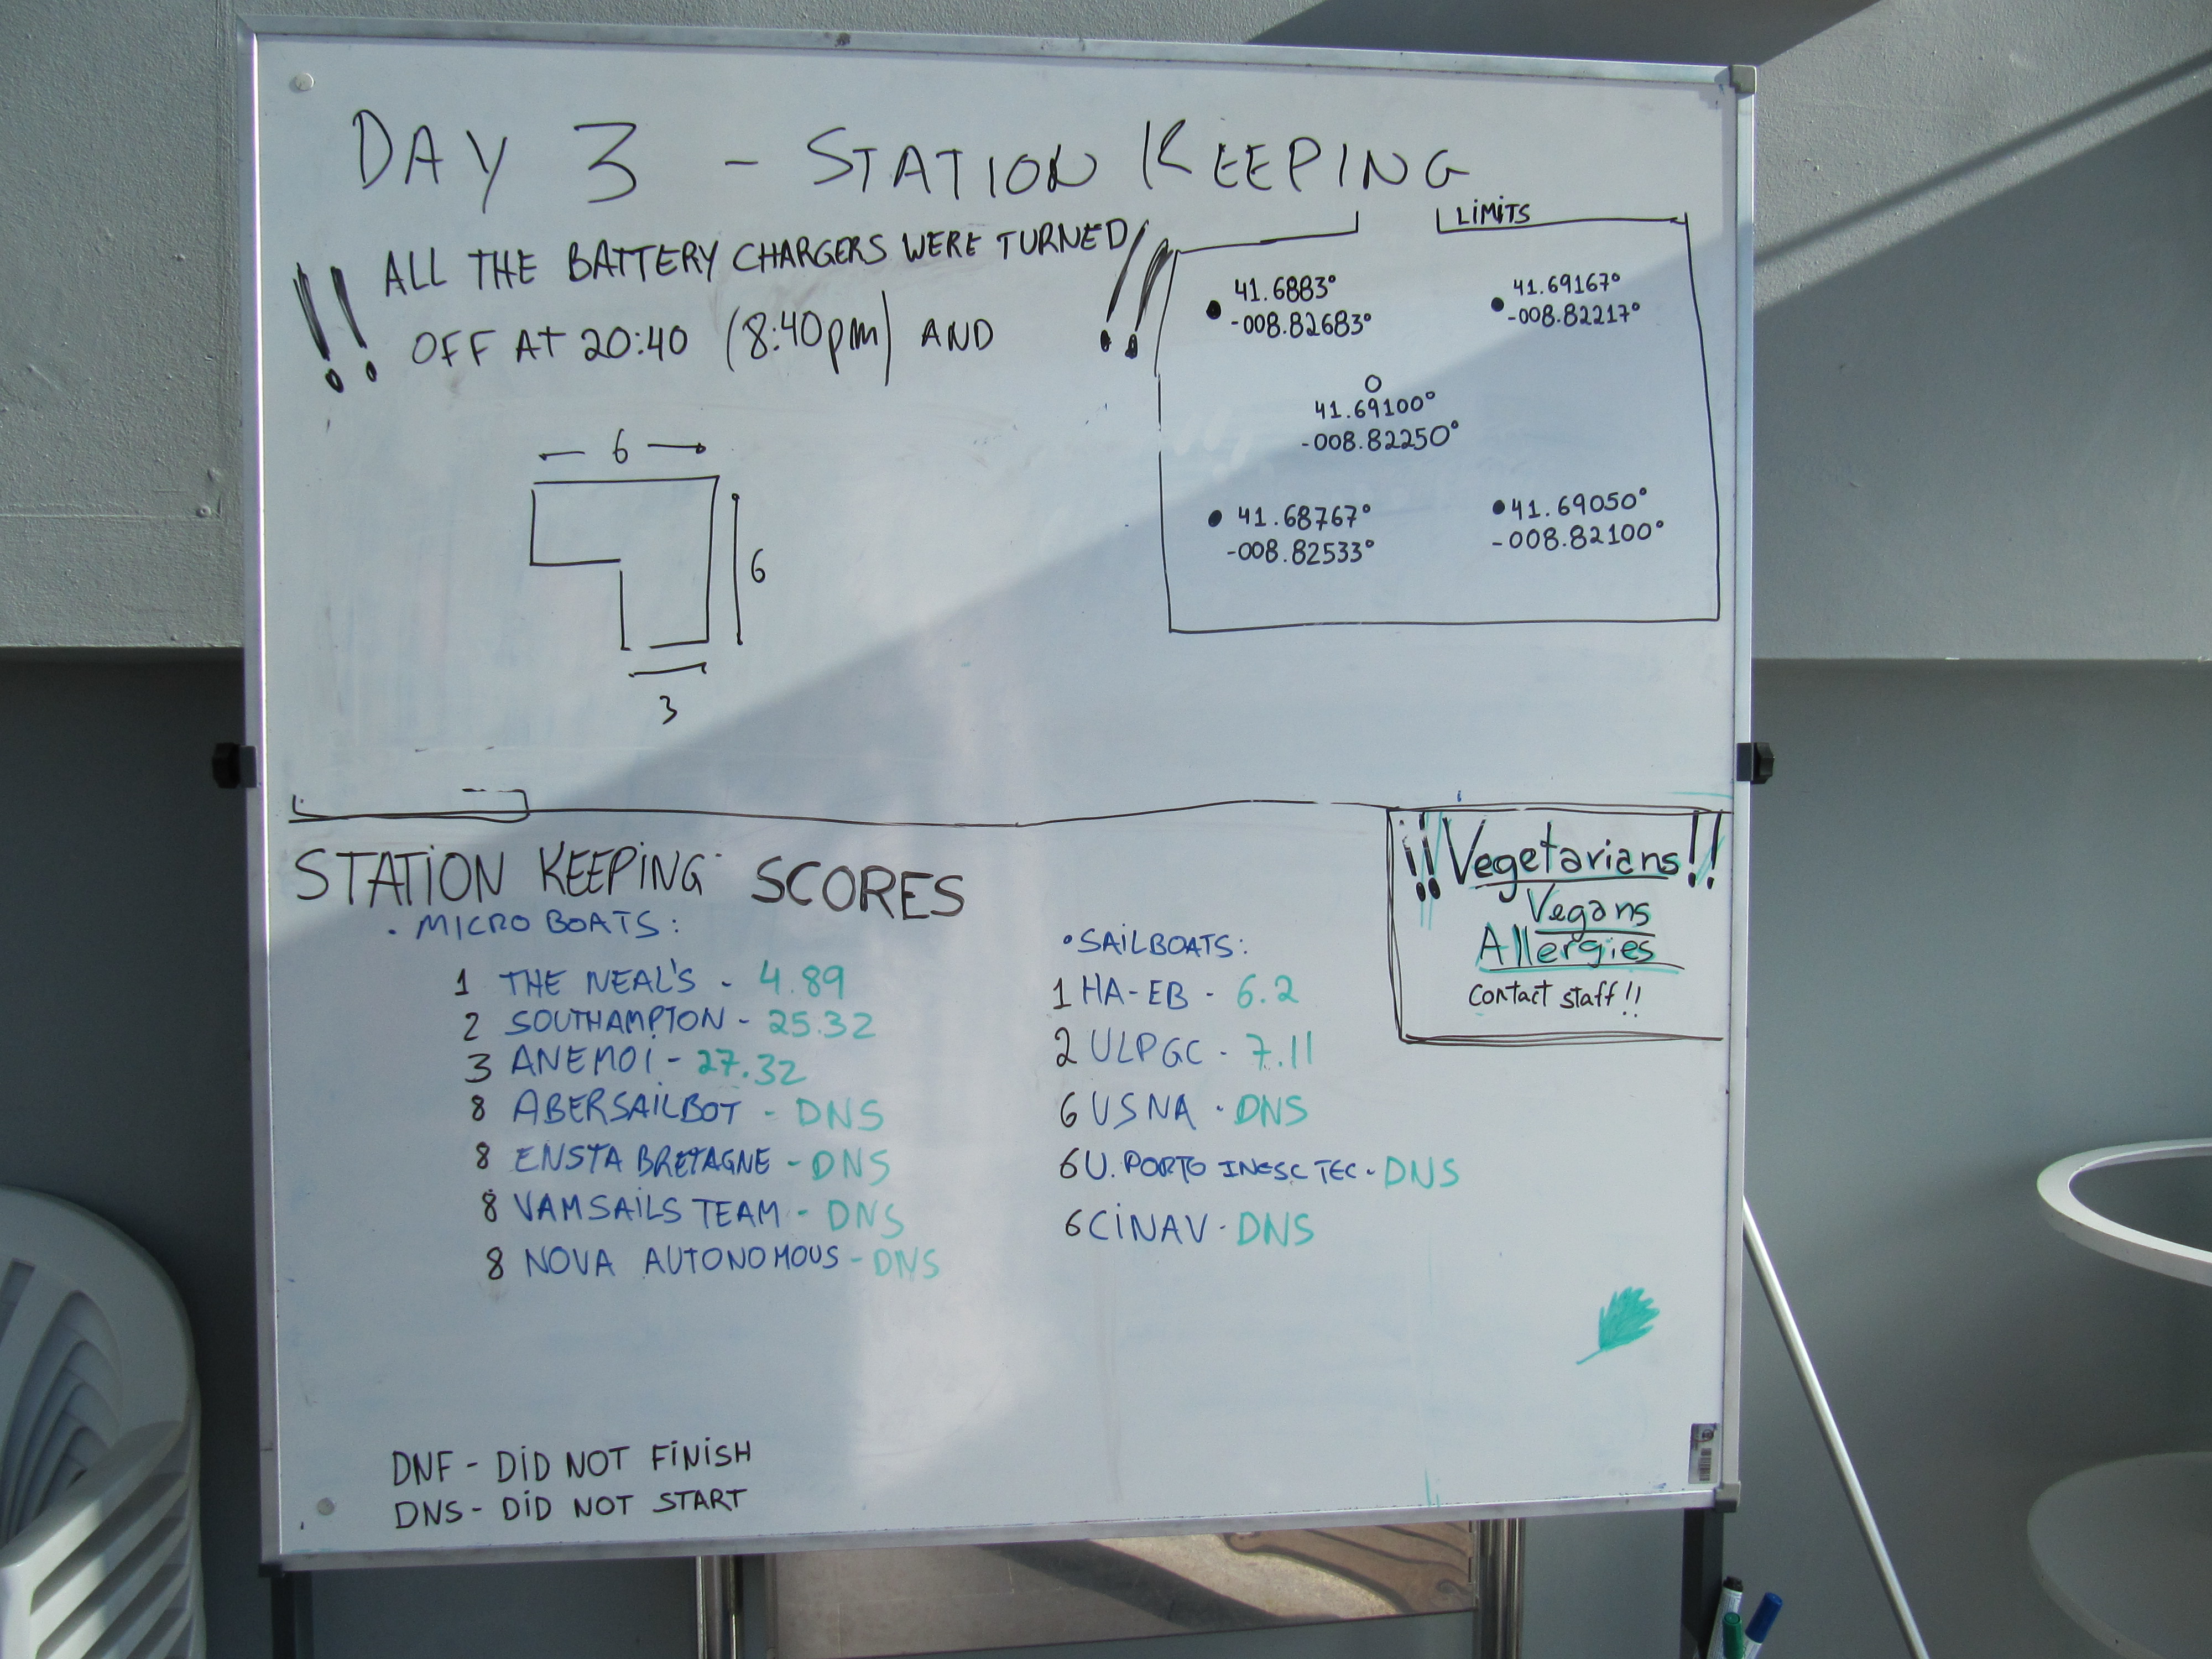 DAY 3 - STATION KEEPING
!! ALL THE BATTERY CHARGERS WERE TURNED !!
OFF AT 20:40 (8:40pm) AND
LIMITS
41.6883°
-008.82683°
41.69167°
-008.82217°
41.69100°
-008.82250°
41.68767°
-008.82533°
41.69050°
-008.82100°
6
6
3
STATION KEEPING SCORES
• MICRO BOATS:
1 THE NEAL'S - 4.89
2 SOUTHAMPTON - 25.32
3 ANEMOI - 27.32
8 ABERSAILBOT - DNS
8 ENSTA BRETAGNE - DNS
8 VAMSAILS TEAM - DNS
8 NOVA AUTONOMOUS - DNS
• SAILBOATS:
1 HA-EB - 6.2
2 ULPGC - 7.11
6 USNA - DNS
6 U. PORTO INESC TEC - DNS
6 CINAV - DNS
!! Vegetarians !!
Vegans
Allergies
contact staff !!
DNF - DID NOT FINISH
DNS - DID NOT START